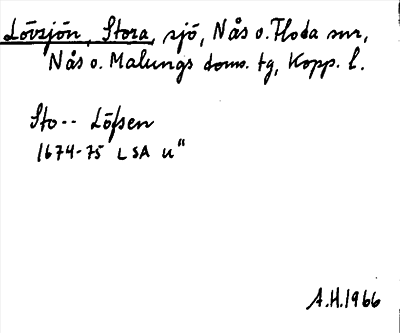 Lövsjön, Stora, sjö, Nås o. Floda snr,
Nås o. Malungs doms. tg, Kopp. l.
Sto-- Löfsen
1674-75 LSA u"
A.H. 1966